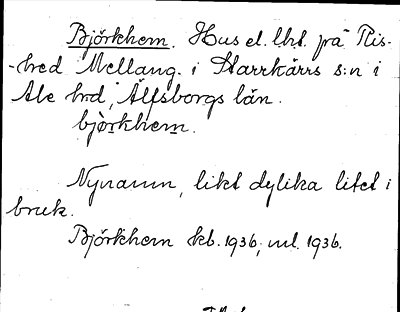 Björkhem. Hus el. lht. på Ris-
-hed Mellang. i Starrkärrs s:n i
Ale hrd, Älfsborgs län.
bjòrkhem.
Nynamn, likt dylika litet i
bruk.
Björkhem kb. 1936, ml. 1936.